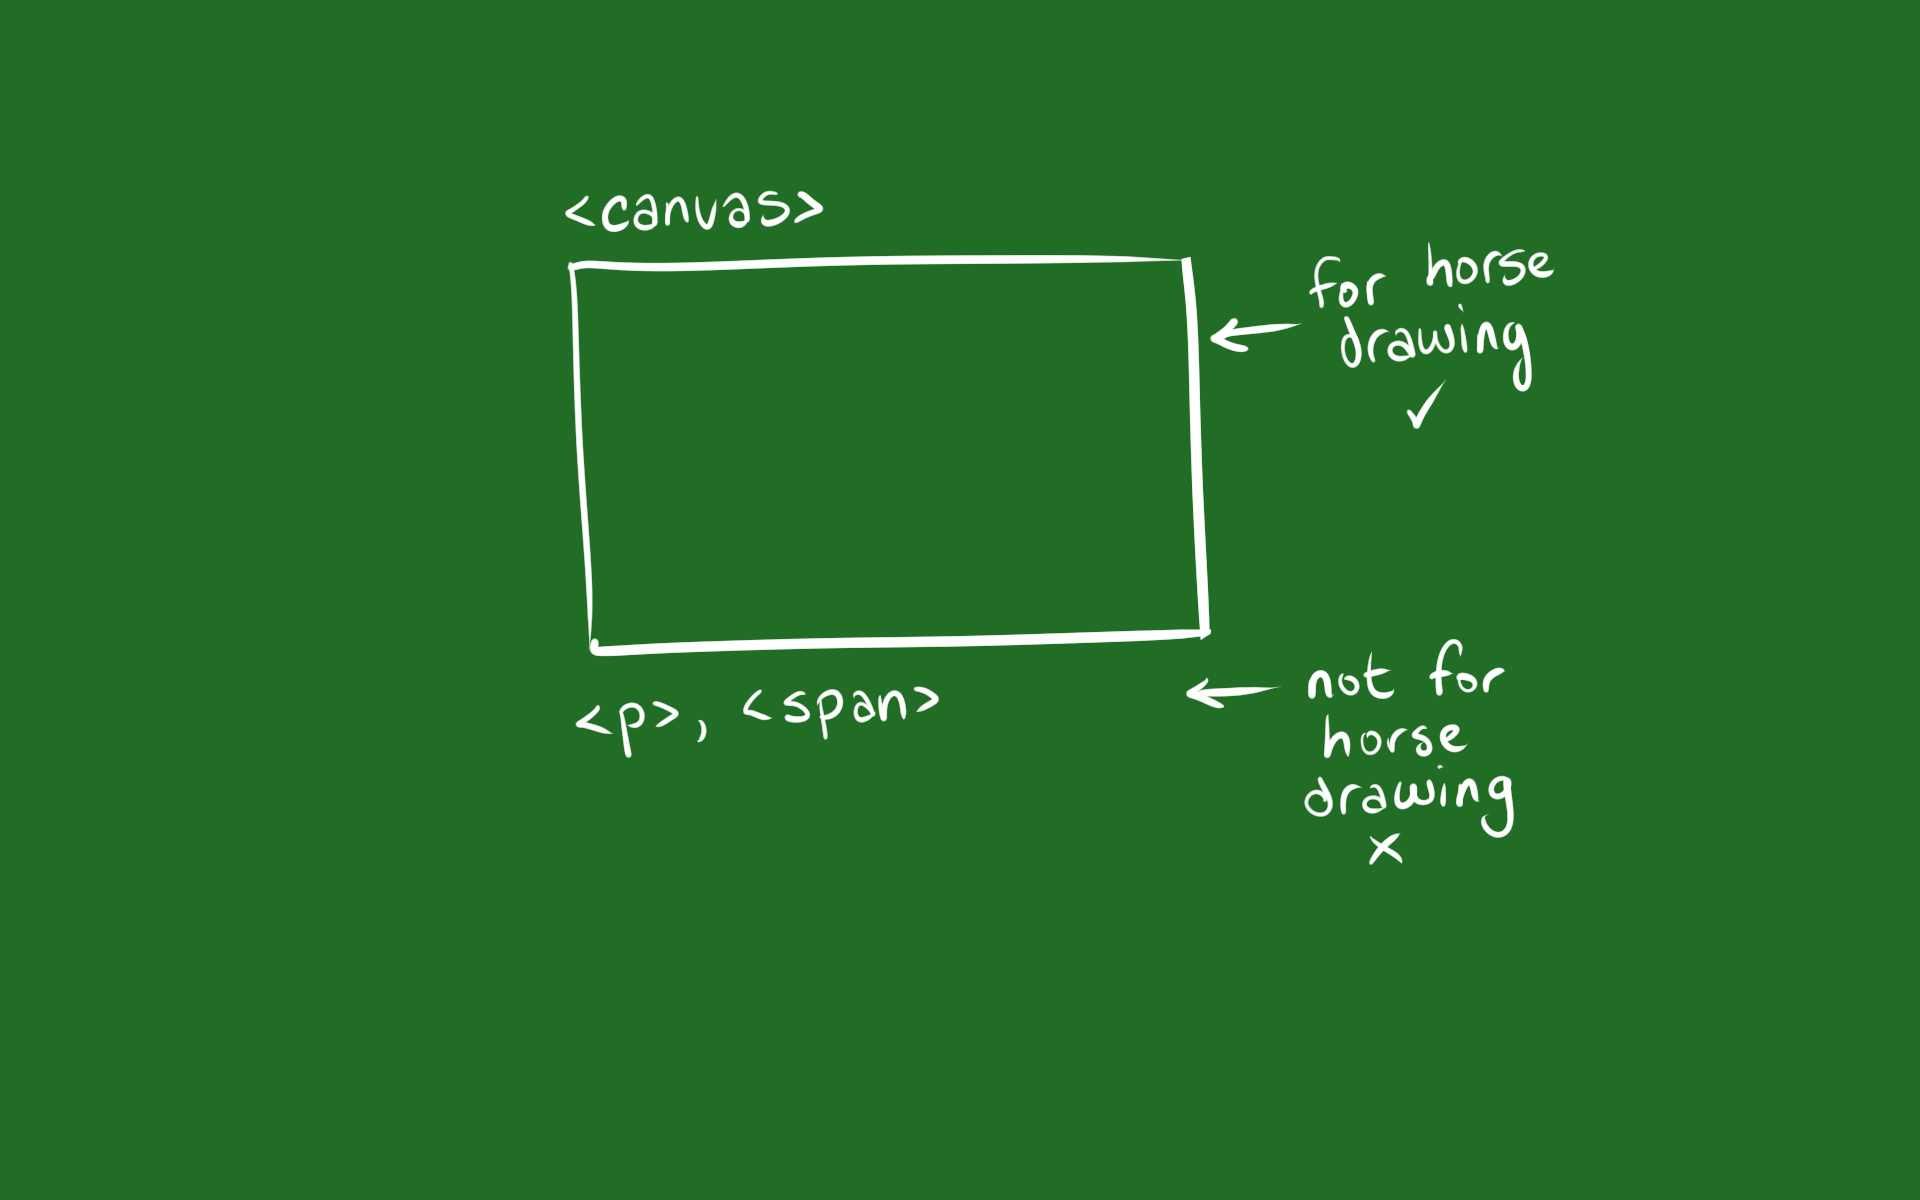 <canvas>
for horse
drawing
✓
<p>, <span>
not for
horse
drawing
x